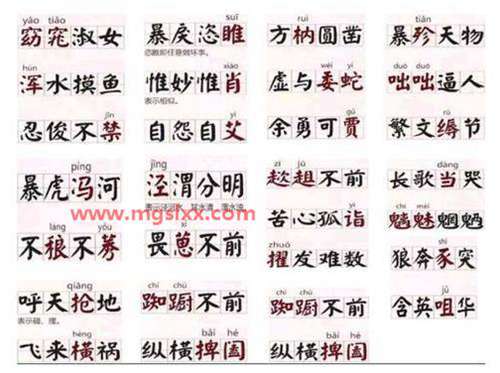 yǎo tiǎo suī ruì tiǎn
窈窕淑女 暴戾恣睢 方枘圆凿 暴殄天物
hún xiào wēi yí duō duō
浑水摸鱼 惟妙惟肖 虚与委蛇 咄咄逼人
表示相似。
jīn yì gǔ rù
忍俊不禁 自怨自艾 余勇可贾 繁文缛节
píng jīng zī jū dàng
暴虎冯河 泾渭分明 趑趄不前 长歌当哭
www.mgslxx.com
láng yǒu xǐ yì chī mèi
不稂不莠 畏葸不前 苦心孤诣 魑魅魍魉
zhuó shǐ
擢发难数 狼奔豕突
qiāng chí chú chí chú jǔ
呼天抢地 踟蹰不前 踟蹰不前 含英咀华
hèng bǎi hé bǎi hé
飞来横祸 纵横捭阖 纵横捭阖